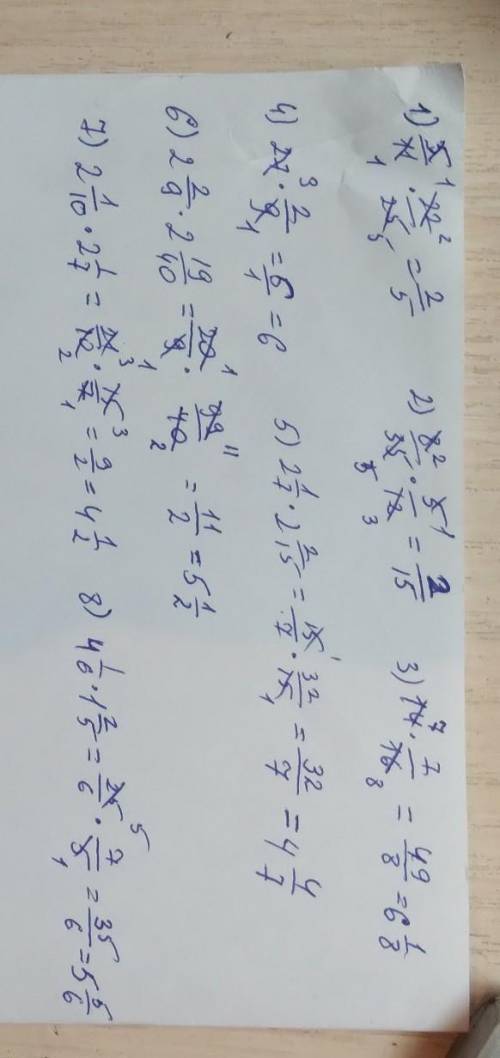 1) 5/11 · 22/25 = 2/5 2) 8/25 · 5/12 = 2/15 3) 14 · 7/16 = 49/8 = 6 1/8
4) 27 · 2/9 = 6/1 = 6 5) 2 1/7 · 2 2/15 = 15/7 · 32/15 = 32/7 = 4 4/7
6) 2 2/9 · 2 19/40 = 20/9 · 99/40 = 11/2 = 5 1/2
7) 2 1/10 · 2 1/7 = 21/10 · 15/7 = 9/2 = 4 1/2 8) 4 1/6 · 1 2/5 = 25/6 · 7/5 = 35/6 = 5 5/6